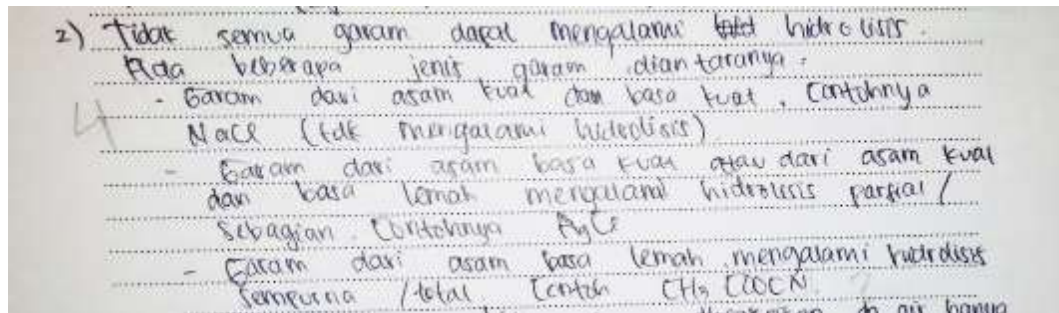 2) Tidak semua garam dapat mengalami hidrolisis.
Ada beberapa jenis garam diantaranya :
- Garam dari asam kuat dan basa kuat, Contohnya
4
NaCl (tdk mengalami hidrolisis)
- Garam dari asam basa kuat atau dari asam kuat
dan basa lemah mengalami hidrolisis parsial /
Sebagian. Contohnya AgCl
- Garam dari asam basa lemah mengalami hidrolisis
Sempurna / total. Contoh CH3 COCN.
di air hanya